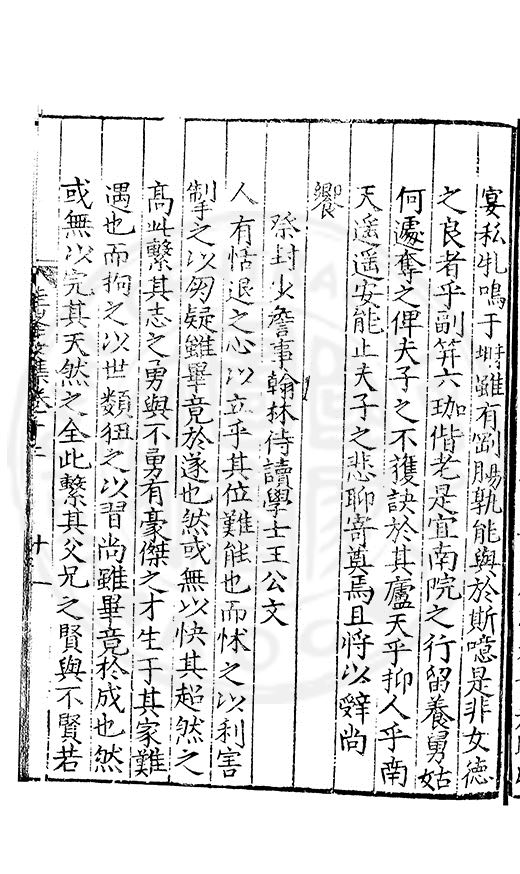 宴私牝鳴于埘雖有剛腸孰能與於斯噫是非女德
之良者乎副笄六珈偕老是宜南院之行留養舅姑
何遽奪之俾夫子之不獲訣於其廬天乎抑人乎南
天遥遥安能止夫子之悲聊寄奠焉且將以辭尚
饗
祭封少詹事翰林侍讀學士王公文
人有恬退之心以立乎其位難能也而怵之以利害
掣之以勿疑雖畢竟於遂也然或無以快其超然之
高此繫其志之勇與不勇有豪傑之才生于其家難
遇也而拘之以世類狃之以習尚雖畢竟於成也然
或無以完其天然之全此繫其父兄之賢與不賢若